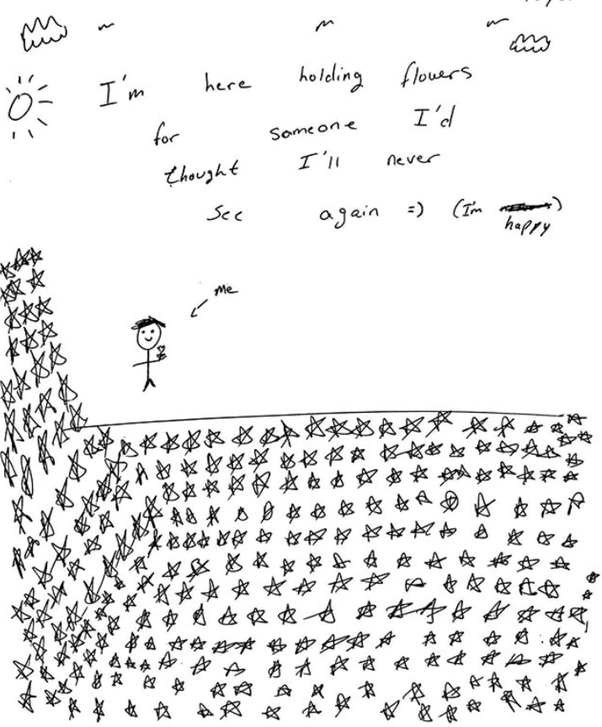 I'm here holding flowers
for someone I'd
thought I'll never
see again =) (I'm happy)
me